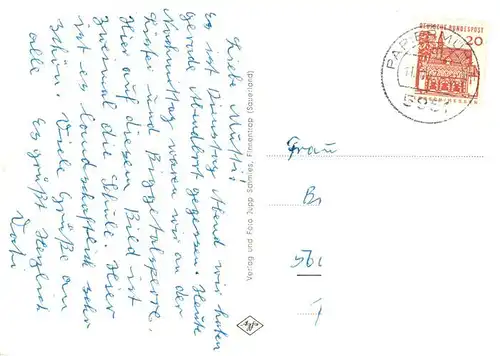 Liebe Mutti!
Es ist Dienstag Abend wir haben
gerade Abendbrot gegessen. Heute
Nachmittag waren wir an der
Lister und Biggetalsperre.
Hier auf diesem Bild ist
zweimal die Schule. Hier
ist es landschaftlich sehr
schön. Viele Grüße an
alle Es grüßt Herzlich
Vati
Verlag und Foto Jupp Schmies, Finnentrop (Sauerland)
DEUTSCHE BUNDESPOST
20
Frau
B
56